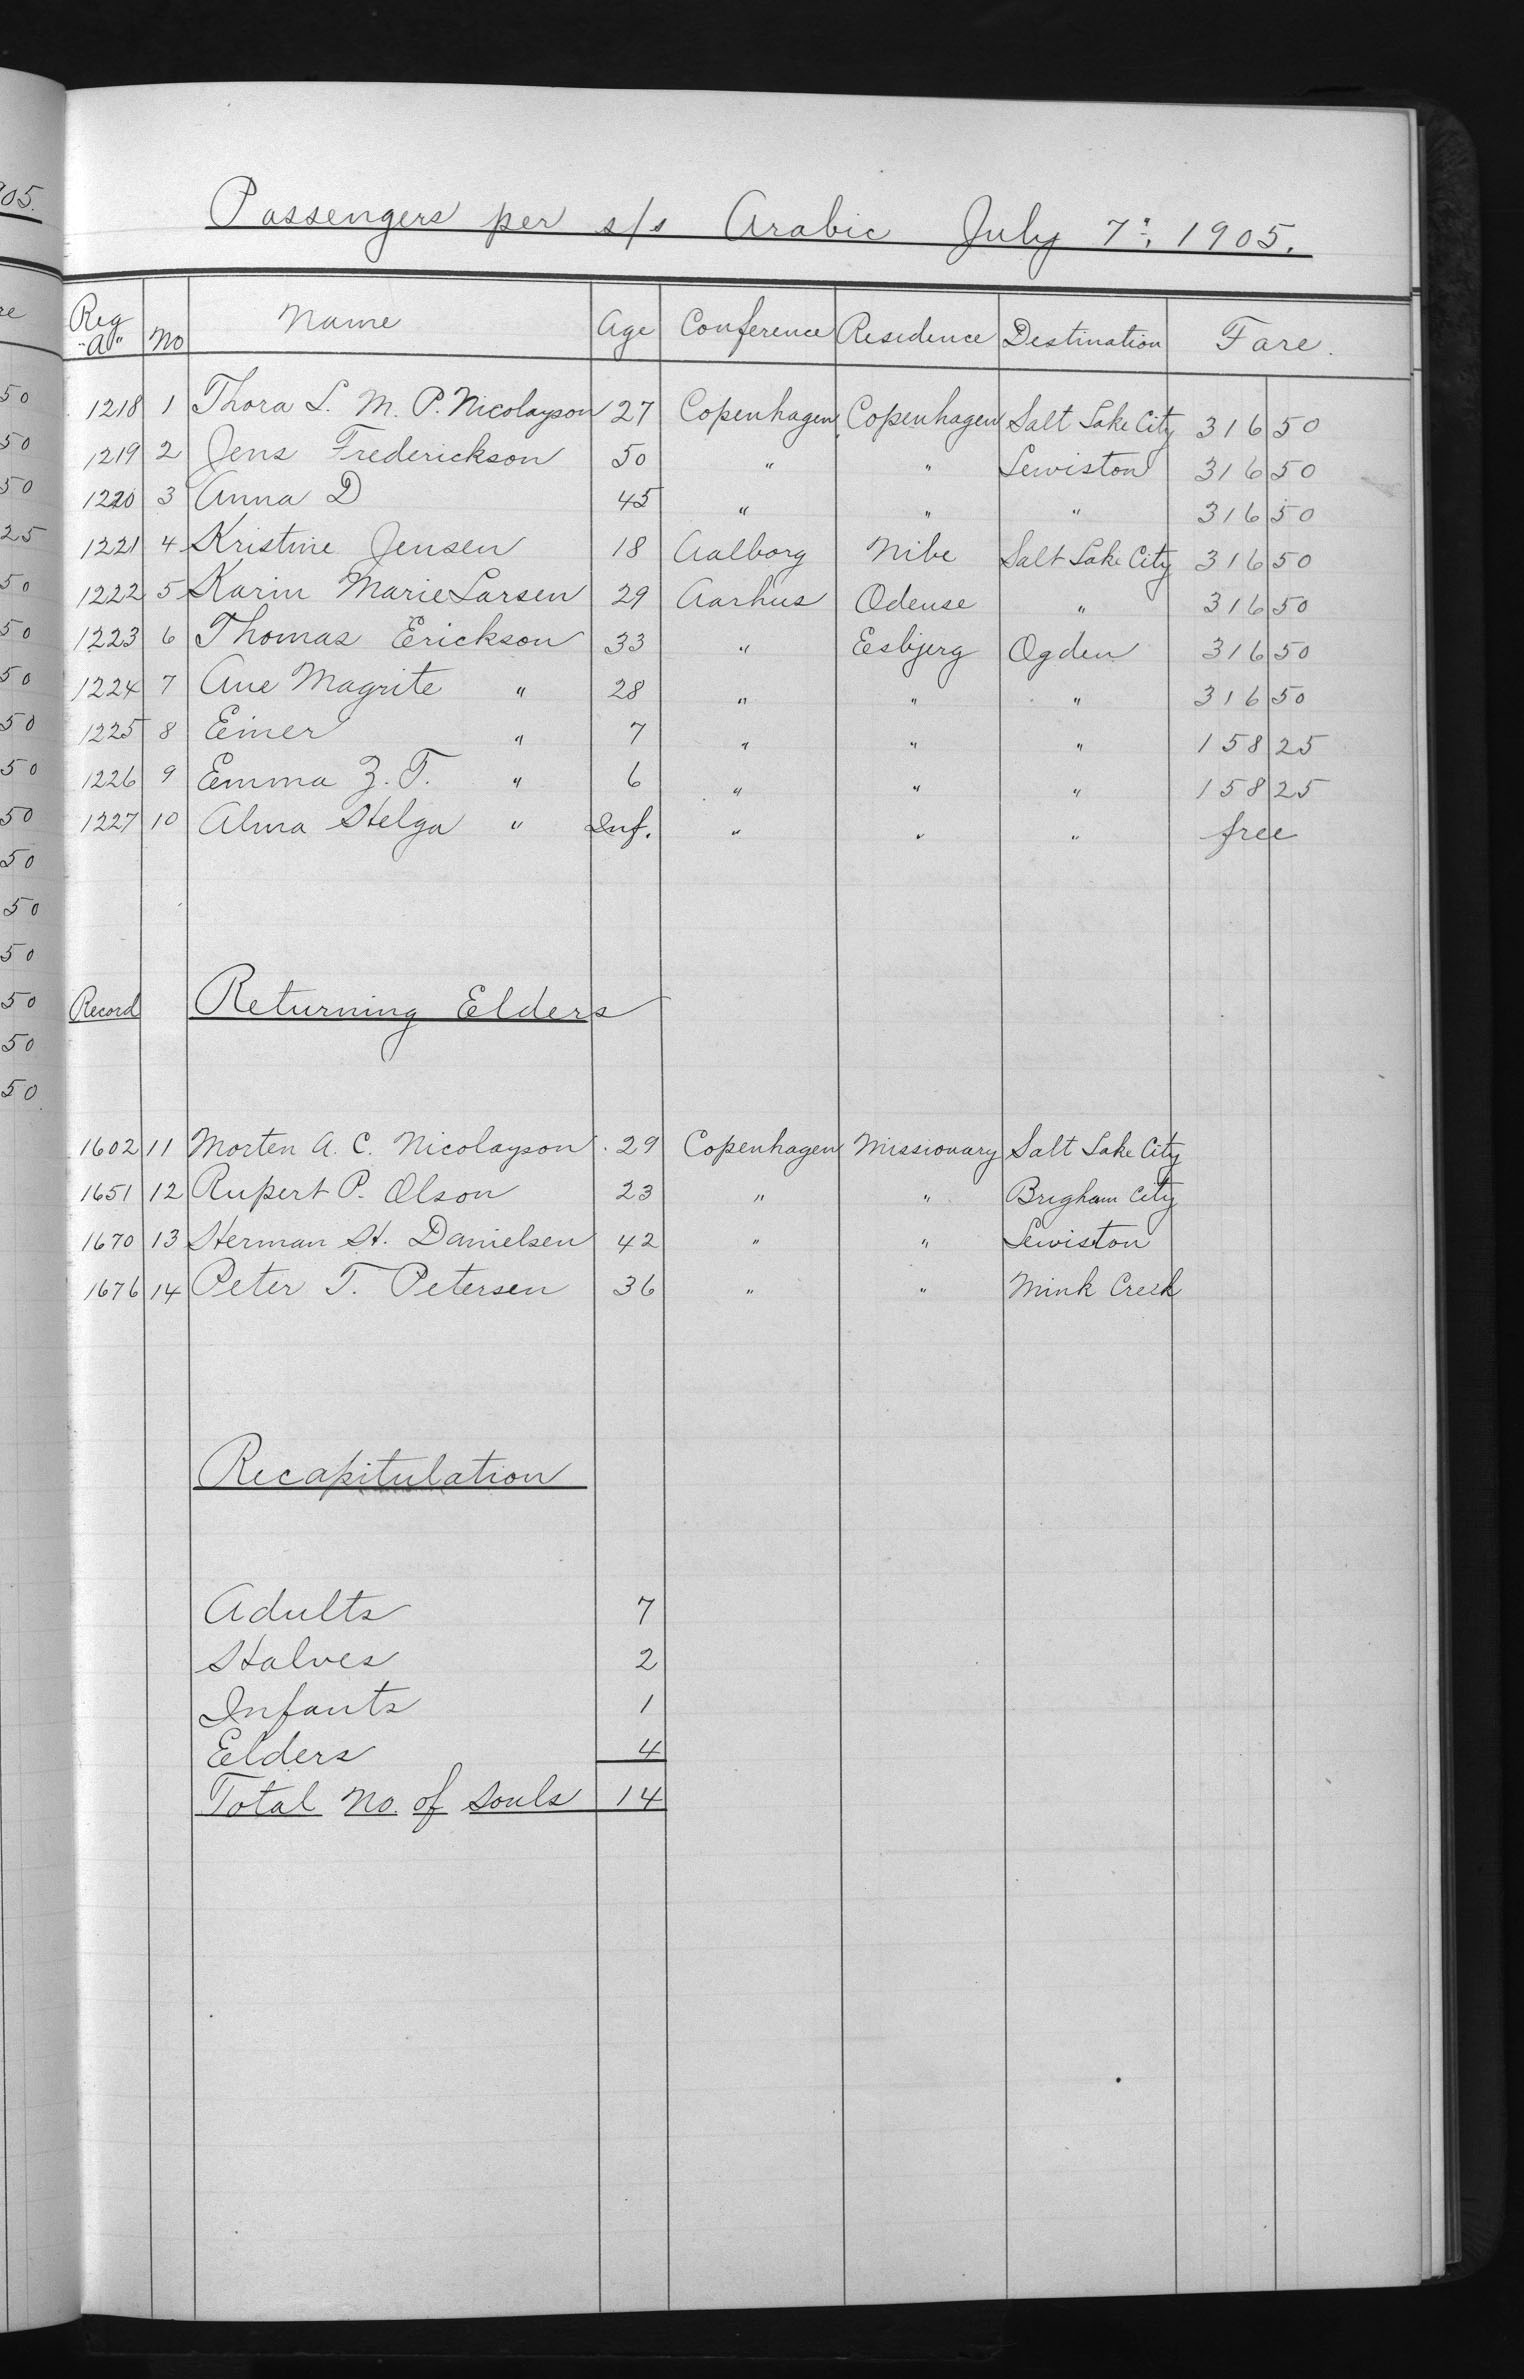 Passengers per s/s Arabic July 7", 1905.
Reg "A" No Name Age Conference Residence Destination Fare.
1218 1 Thora L. M. P. Nicolayson 27 Copenhagen Copenhagen Salt Lake City 316 50
1219 2 Jens Frederickson 50 " " Lewiston 316 50
1220 3 Anna D 45 " " " 316 50
1221 4 Kristine Jensen 18 Aalborg Nibe Salt Lake City 316 50
1222 5 Karin Marie Larsen 29 Aarhus Odense " 316 50
1223 6 Thomas Erickson 33 " Esbjerg Ogden 316 50
1224 7 Ane Magrite " 28 " " " 316 50
1225 8 Einer " 7 " " " 158 25
1226 9 Emma Z. T. " 6 " " " 158 25
1227 10 Alma Helga " Inf. " " " free
Record Returning Elders
1602 11 Morten A. C. Nicolayson 29 Copenhagen Missionary Salt Lake City
1651 12 Rupert P. Olson 23 " " Brigham City
1670 13 Herman H. Danielsen 42 " " Lewiston
1676 14 Peter T. Petersen 36 " " Mink Creek
Recapitulation
Adults 7
Halves 2
Infants 1
Elders 4
Total No. of Souls 14
905.
re
50
50
50
25
50
50
50
50
50
50
50
50
50
50
50
50